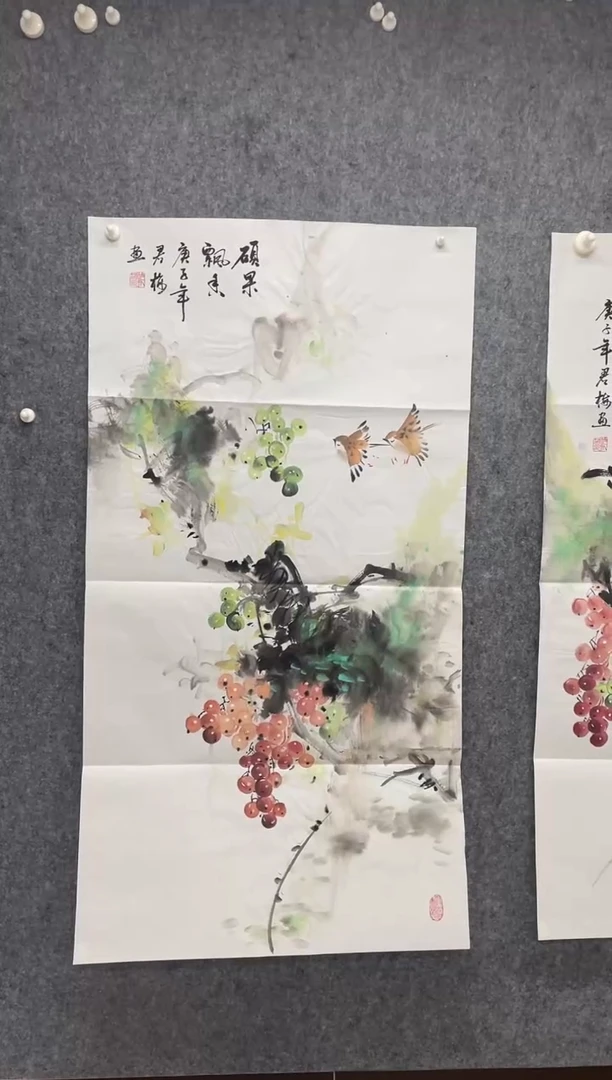 硕果
飘香
庚子年
君梅
画
庚子年君梅画